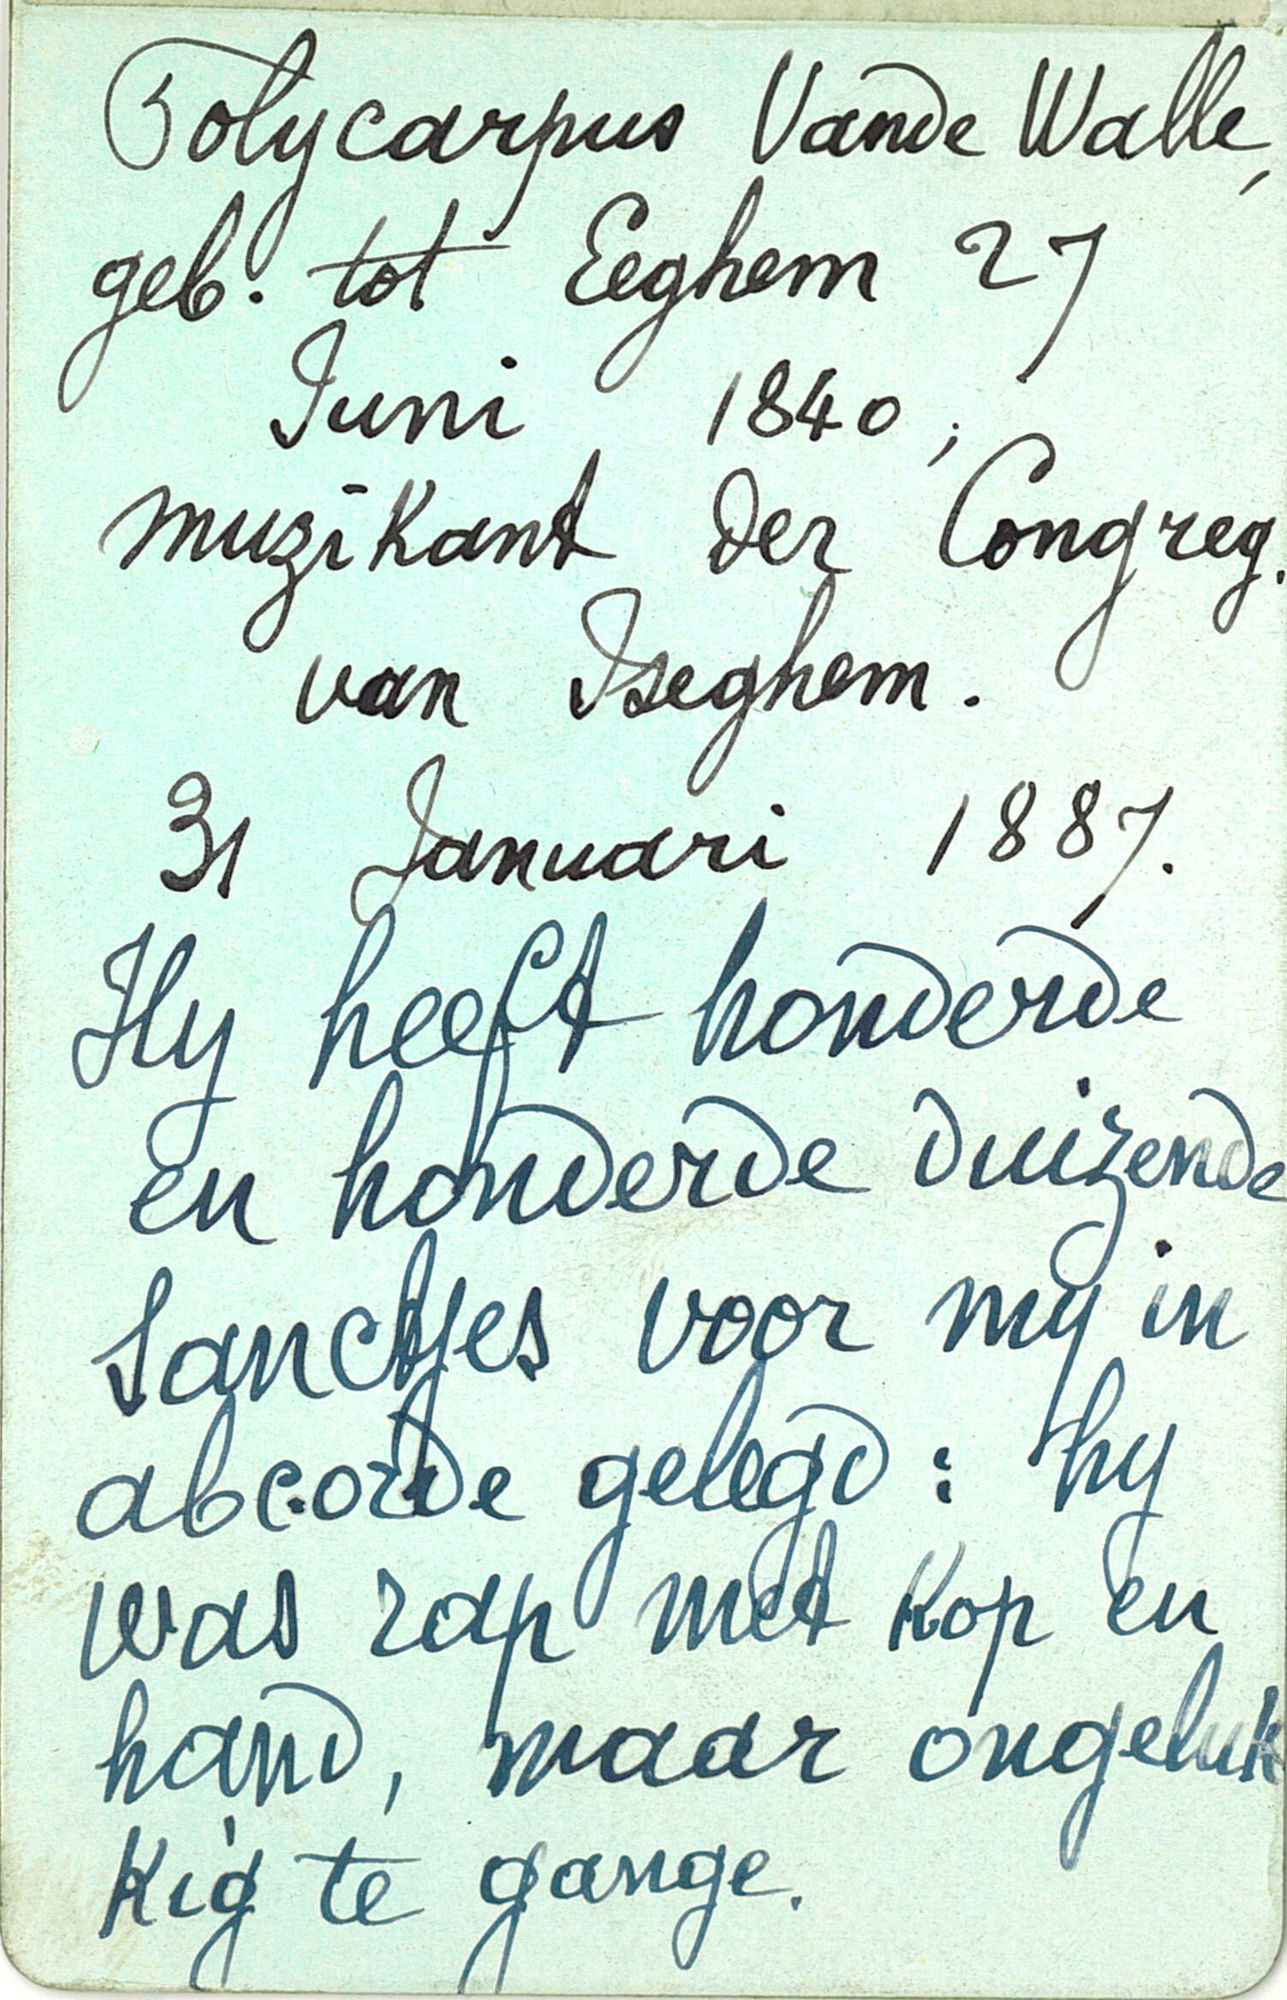 Polycarpus Vande Walle,
geb. tot Eeghem 27
Juni 1840,
muzikant der Congreg.
van Iseghem.
31 Januari 1887.
Hy heeft honderde
en honderde duizende
Sanctjes voor my in
abcorde gelegd: hy
was rap met kop en
hand, maar ongeluk
kig te gange.